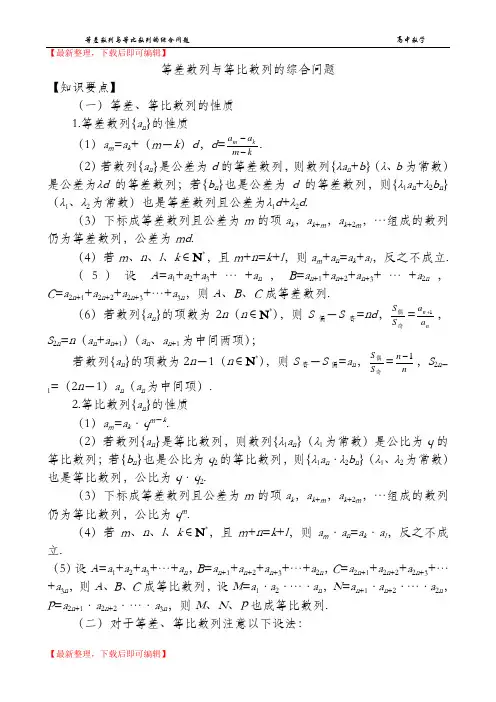 等差数列与等比数列的综合问题 高中数学
【最新整理,下载后即可编辑】
等差数列与等比数列的综合问题
【知识要点】
(一)等差、等比数列的性质
1.等差数列{an}的性质
(1)am=ak+(m-k)d,d=\frac{am-ak}{m-k}.
(2)若数列{an}是公差为d的等差数列,则数列{λan+b}(λ、b为常数)
是公差为λd的等差数列;若{bn}也是公差为d的等差数列,则{λ1an+λ2bn}
(λ1、λ2为常数)也是等差数列且公差为λ1d+λ2d.
(3)下标成等差数列且公差为m的项ak,ak+m,ak+2m,…组成的数列
仍为等差数列,公差为md.
(4)若m、n、l、k∈N*,且m+n=k+l,则am+an=ak+al,反之不成立.
(5)设A=a1+a2+a3+…+an,B=an+1+an+2+an+3+…+a2n,
C=a2n+1+a2n+2+a2n+3+…+a3n,则A、B、C成等差数列.
(6)若数列{an}的项数为2n(n∈N*),则S偶-S奇=nd,\frac{S偶}{S奇}=\frac{an+1}{an},
S2n=n(an+an+1)(an、an+1为中间两项);
若数列{an}的项数为2n-1(n∈N*),则S奇-S偶=an,\frac{S偶}{S奇}=\frac{n-1}{n},S2n-
1=(2n-1)an(an为中间项).
2.等比数列{an}的性质
(1)am=ak·qm-k.
(2)若数列{an}是等比数列,则数列{λ1an}(λ1为常数)是公比为q的
等比数列;若{bn}也是公比为q2的等比数列,则{λ1an·λ2bn}(λ1、λ2为常数)
也是等比数列,公比为q·q2.
(3)下标成等差数列且公差为m的项ak,ak+m,ak+2m,…组成的数列
仍为等比数列,公比为qm.
(4)若m、n、l、k∈N*,且m+n=k+l,则am·an=ak·al,反之不成
立.
(5)设A=a1+a2+a3+…+an,B=an+1+an+2+an+3+…+a2n,C=a2n+1+a2n+2+a2n+3+…
+a3n,则A、B、C成等比数列,设M=a1·a2·…·an,N=an+1·an+2·…·a2n,
P=a2n+1·a2n+2·…·a3n,则M、N、P也成等比数列.
(二)对于等差、等比数列注意以下设法:
【最新整理,下载后即可编辑】